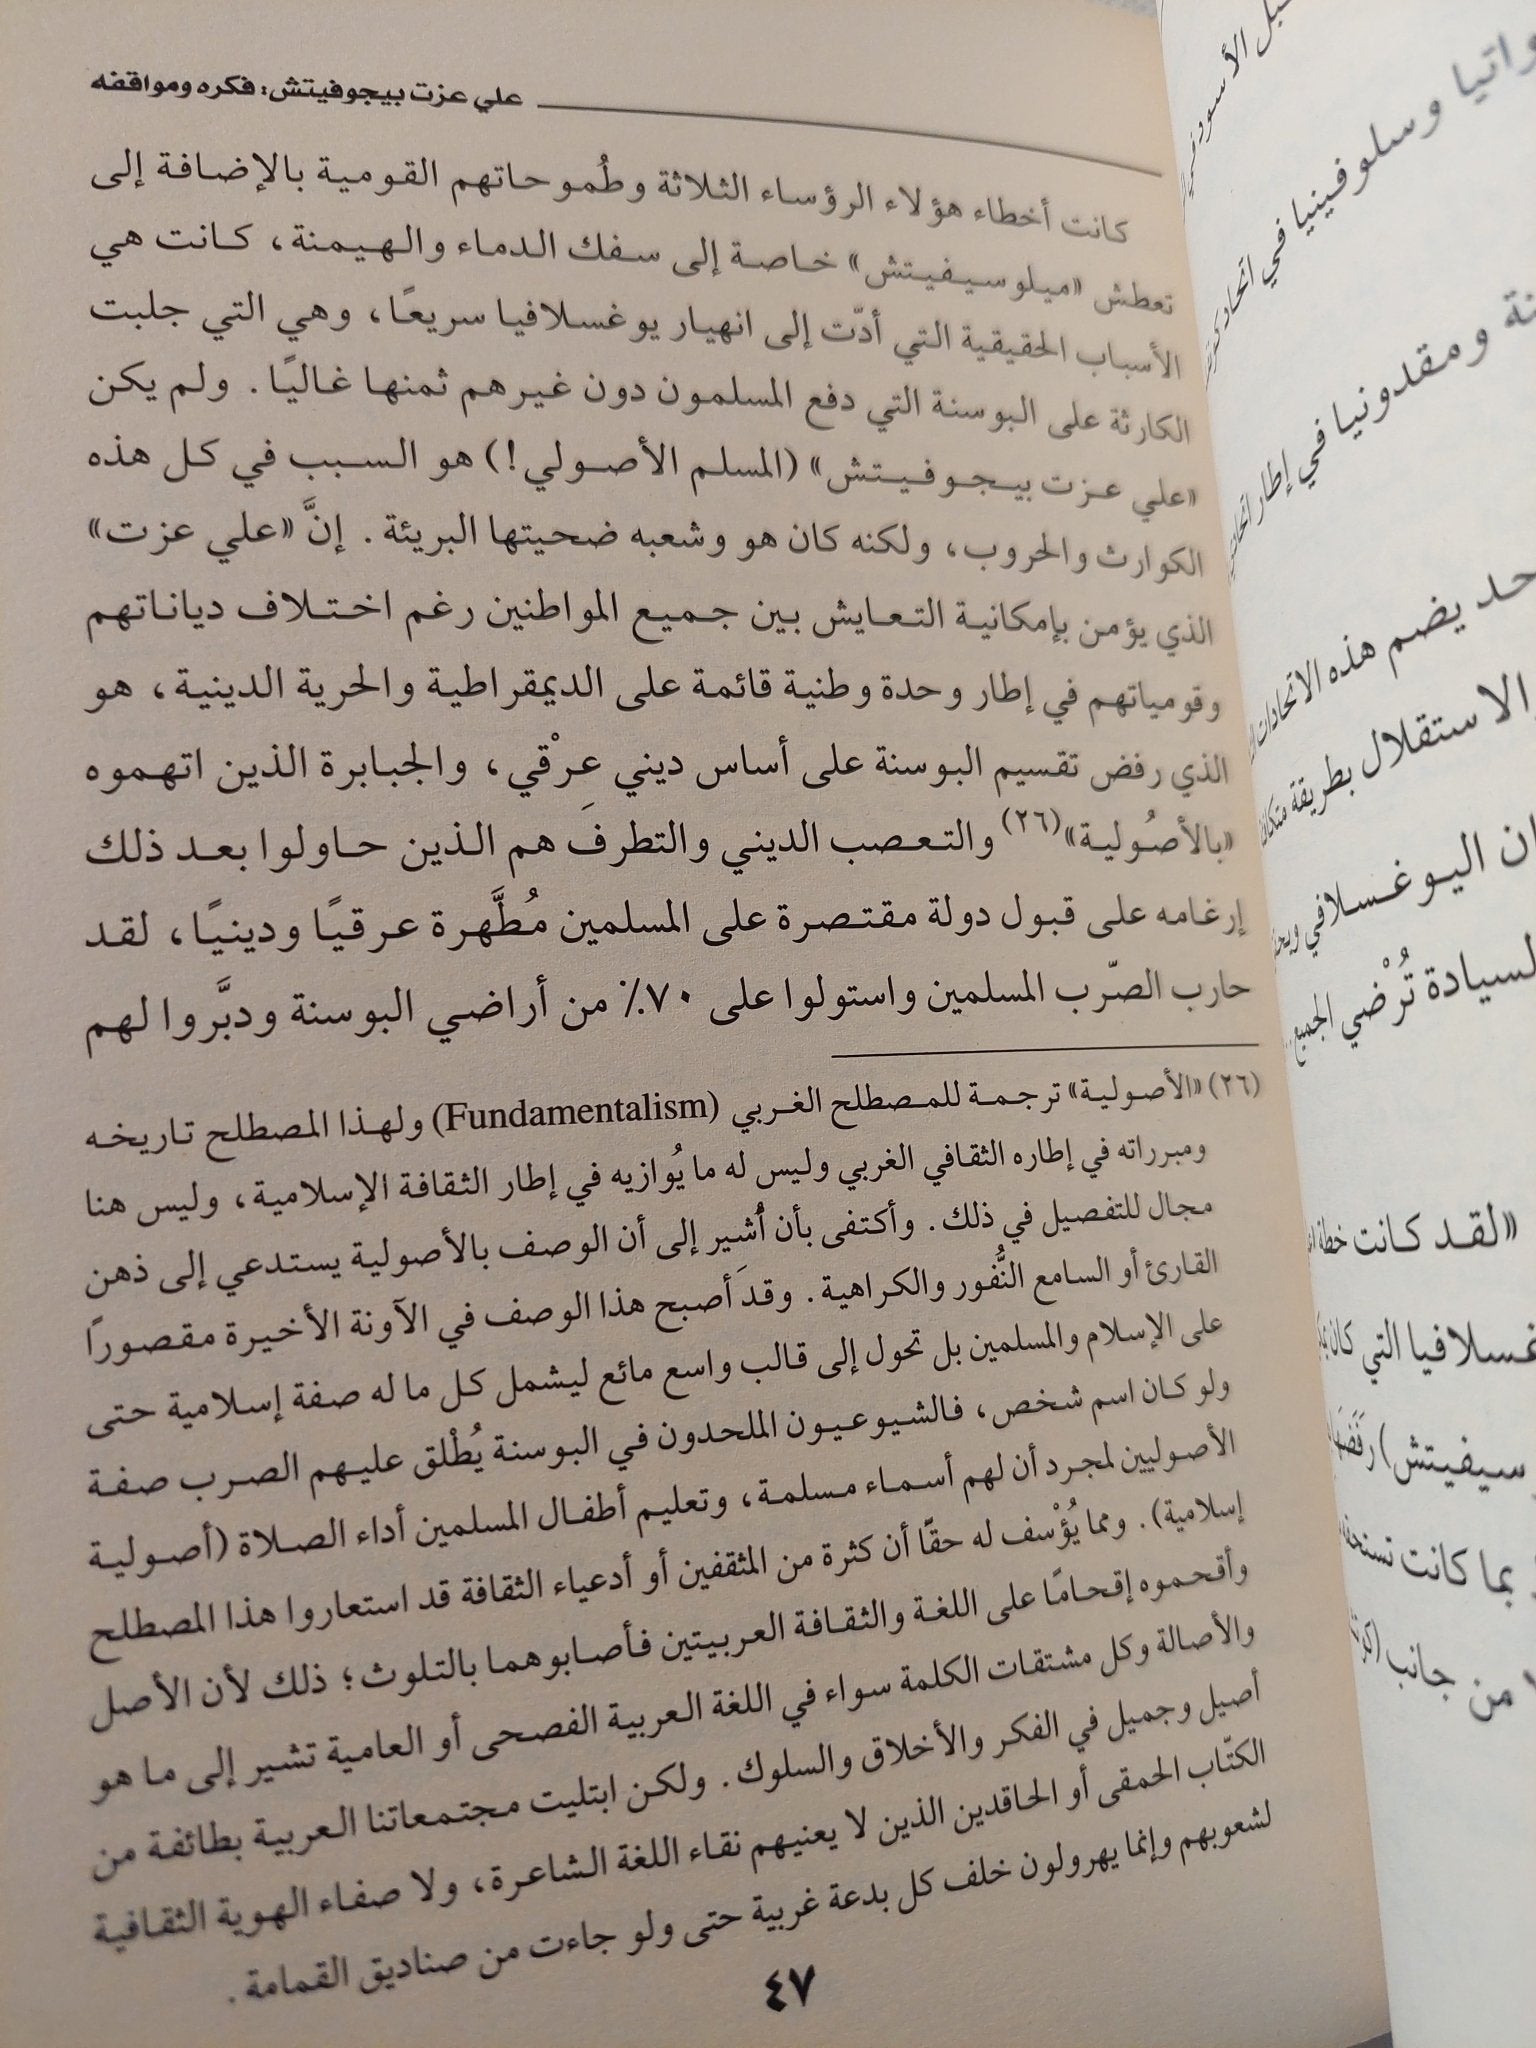 علي عزت بيجوفيتش: فكره ومواقفه
كانت أخطاء هؤلاء الرؤساء الثلاثة وطُموحاتهم القومية بالإضافة إلى
تعطش «ميلوسيفيتش» خاصة إلى سفك الدماء والهيمنة، كانت هي
الأسباب الحقيقية التي أدّت إلى انهيار يوغسلافيا سريعًا، وهي التي جلبت
الكارثة على البوسنة التي دفع المسلمون دون غيرهم ثمنها غاليًا. ولم يكن
«علي عزت بيجوفيتش» (المسلم الأصولي!) هو السبب في كل هذه
الكوارث والحروب، ولكنه كان هو وشعبه ضحيتها البريئة. إنَّ «علي عزت»
الذي يؤمن بإمكانية التعايش بين جميع المواطنين رغم اختلاف دياناتهم
وقومياتهم في إطار وحدة وطنية قائمة على الديمقراطية والحرية الدينية، هو
الذي رفض تقسيم البوسنة على أساس ديني عِرْقي، والجبابرة الذين اتهموه
«بالأصُولية»(٢٦) والتعصب الديني والتطرف هم الذين حاولوا بعد ذلك
إرغامه على قبول دولة مقتصرة على المسلمين مُطَّهرة عرقيًا ودينيًا، لقد
حارب الصّرب المسلمين واستولوا على ٧٠٪ من أراضي البوسنة ودبَّروا لهم
(٢٦) «الأصولية» ترجمة للمصطلح الغربي (Fundamentalism) ولهذا المصطلح تاريخه
ومبرراته في إطاره الثقافي الغربي وليس له ما يُوازيه في إطار الثقافة الإسلامية، وليس هنا
مجال للتفصيل في ذلك. وأكتفى بأن أُشير إلى أن الوصف بالأصولية يستدعي إلى ذهن
القارئ أو السامع النُّفور والكراهية. وقدَ أصبح هذا الوصف في الآونة الأخيرة مقصورًا
على الإسلام والمسلمين بل تحول إلى قالب واسع مائع ليشمل كل ما له صفة إسلامية حتى
ولو كان اسم شخص، فالشيوعيون الملحدون في البوسنة يُطْلق عليهم الصرب صفة
الأصوليين لمجرد أن لهم أسماء مسلمة، وتعليم أطفال المسلمين أداء الصلاة (أصولية
إسلامية). ومما يُؤْسف له حقًا أن كثرة من المثقفين أو أدعياء الثقافة قد استعاروا هذا المصطلح
وأقحموه إقحامًا على اللغة والثقافة العربيتين فأصابوهما بالتلوث؛ ذلك لأن الأصل
والأصالة وكل مشتقات الكلمة سواء في اللغة العربية الفصحى أو العامية تشير إلى ما هو
أصيل وجميل في الفكر والأخلاق والسلوك. ولكن ابتليت مجتمعاتنا العربية بطائفة من
الكتّاب الحمقى أو الحاقدين الذين لا يعنيهم نقاء اللغة الشاعرة، ولا صفاء الهوية الثقافية
لشعوبهم وإنما يهرولون خلف كل بدعة غربية حتى ولو جاءت من صناديق القمامة.
٤٧
وسلوفينيا في اتحاد
ومقدونيا في إطار
يضم هذه الاتحادات
الاستقلال بطريقة
اليوغسلافي
تُرْضي الجميع..
«لقد كانت خطة
التي كان
سيفيتش)
بما كانت
من جانب